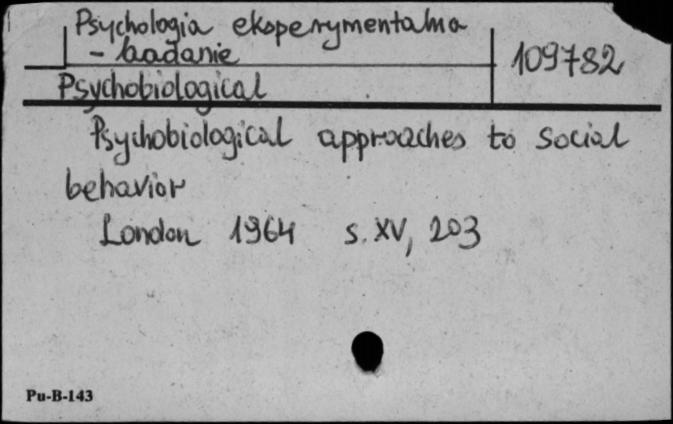 Psychologia eksperymentalna
- badanie
109782
Psychobiological
Psychobiological approaches to social
behavior
London 1964 s. XV, 203
Pu-B-143